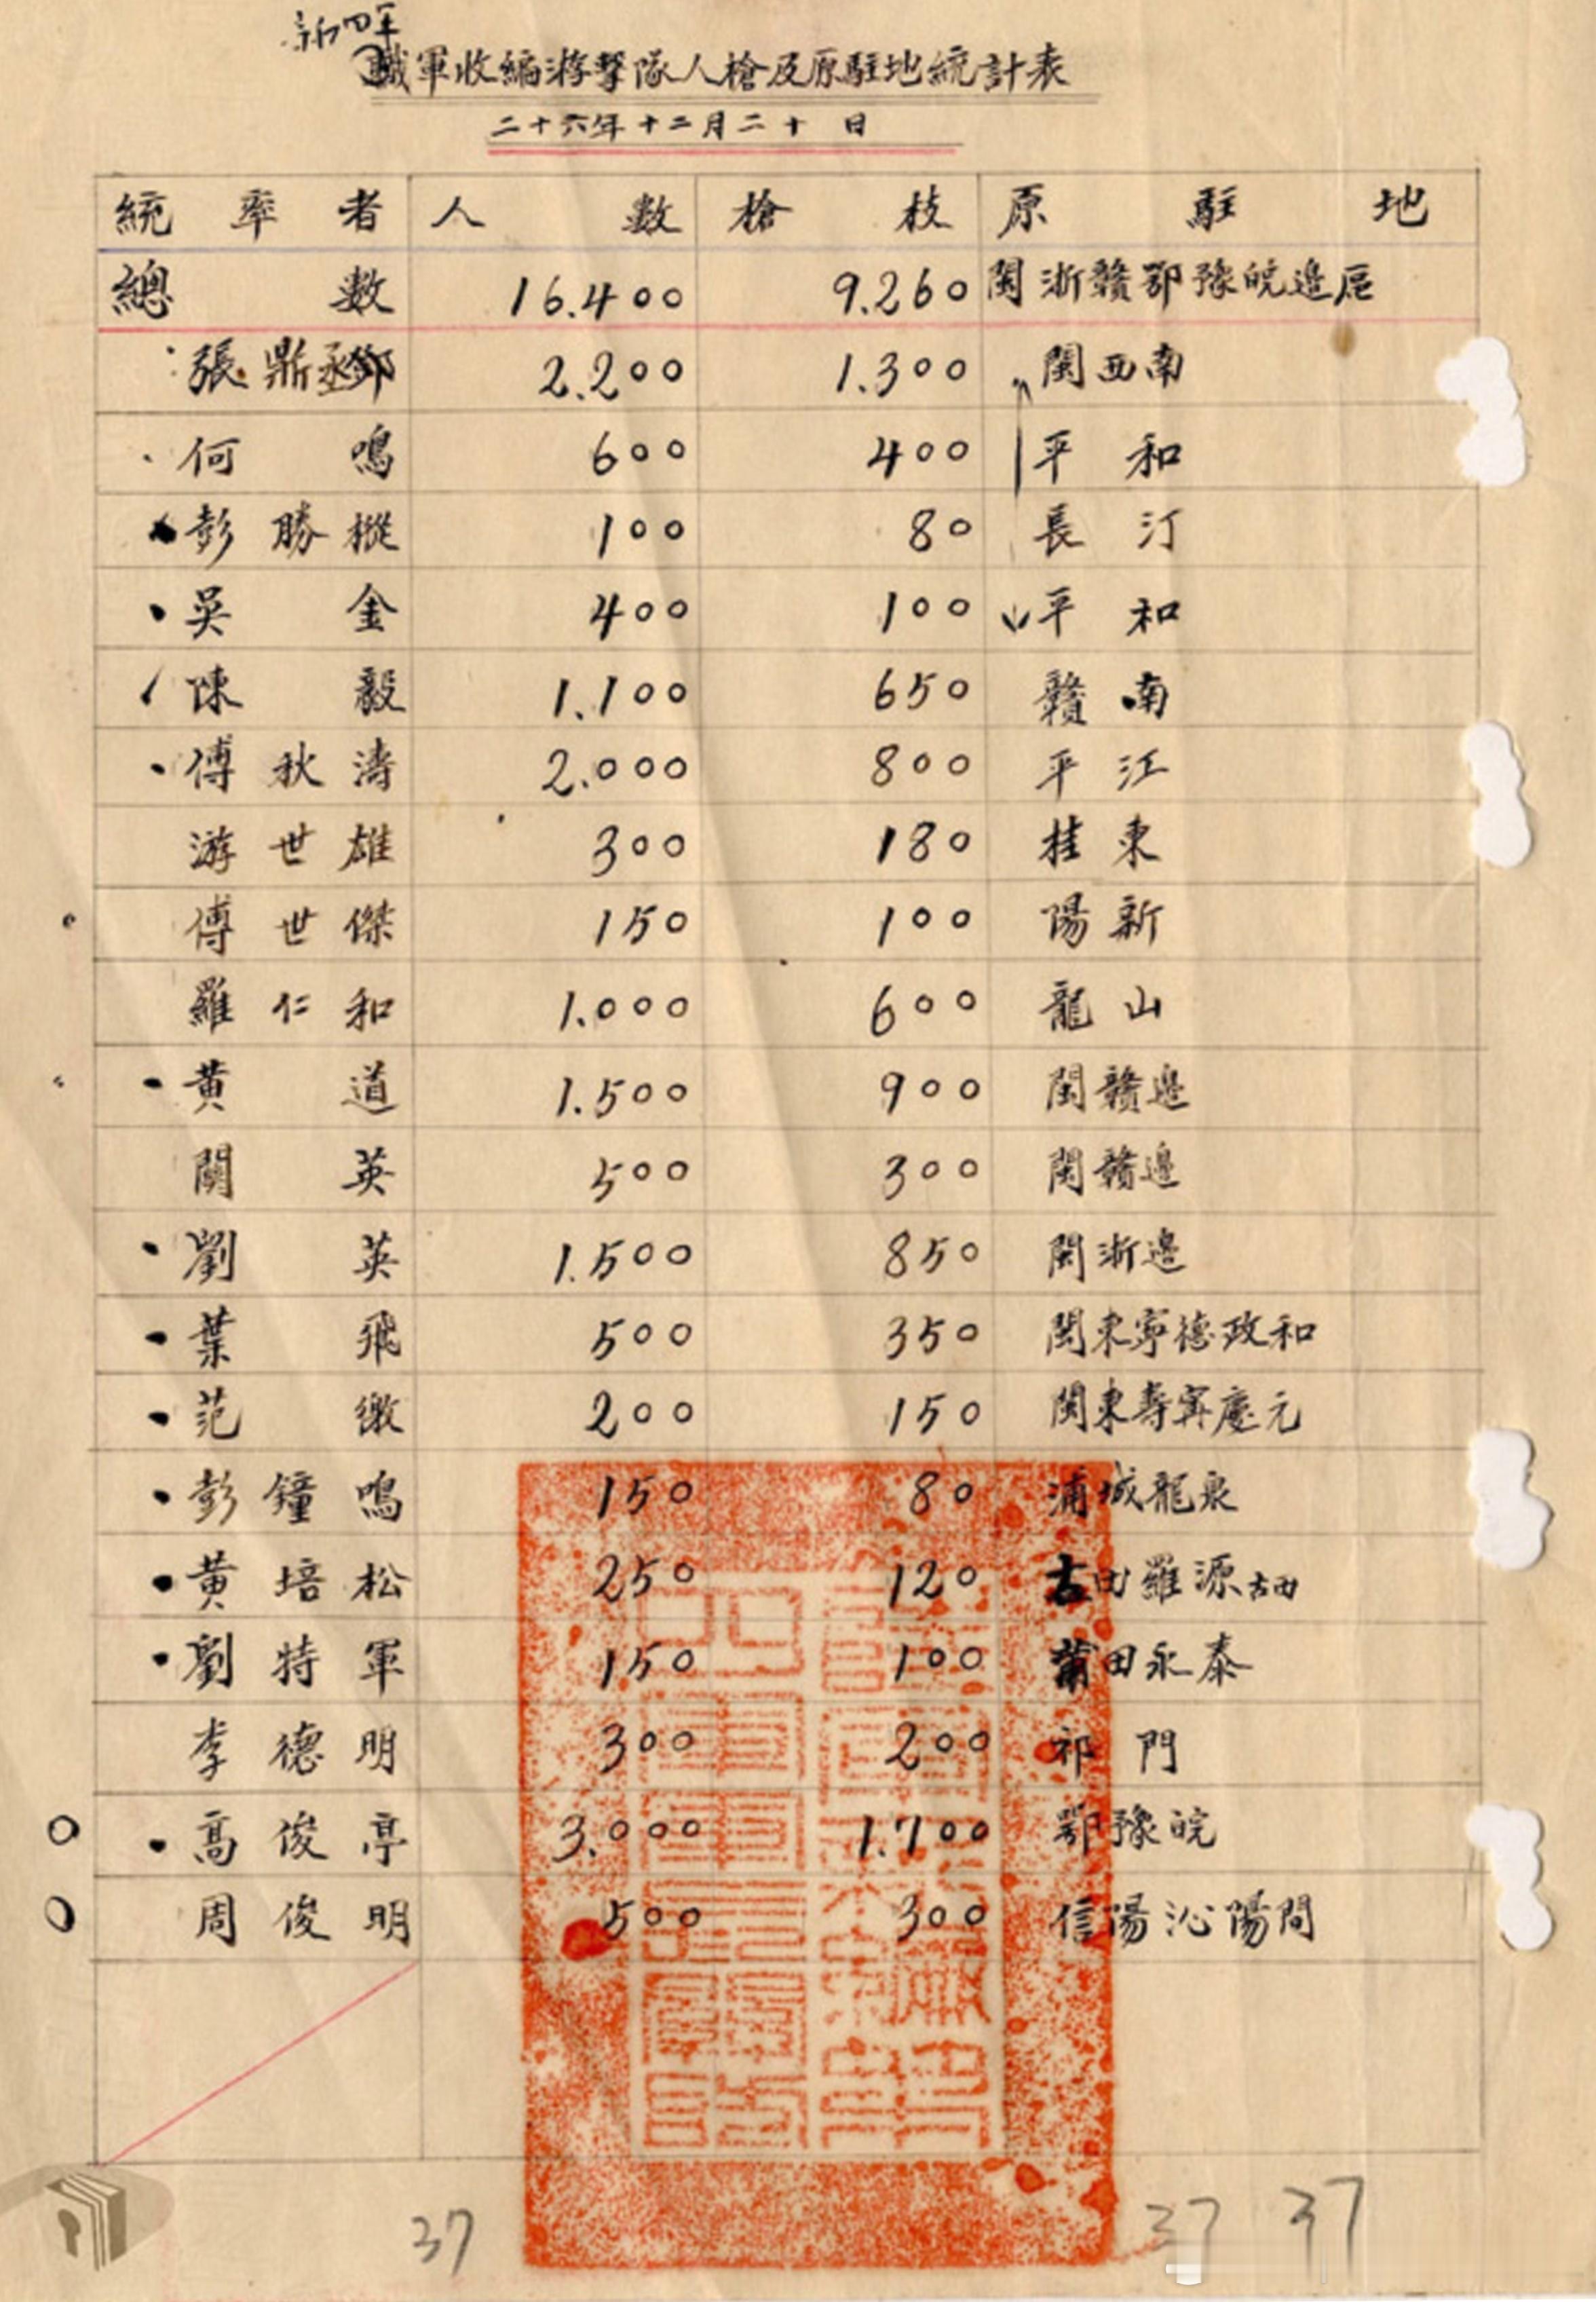 新四軍
職軍收編游擊隊人槍及原駐地統計表
二十六年十二月二十 日
統率者 人數 槍枝 原駐地
總數 16.400 9.260 閩浙贛鄂豫皖邊區
張鼎丞鄧 2.200 1.300 閩西南
何鳴 600 400 平和
彭勝樅 100 80 長汀
吳金 400 100 平和
陳毅 1.100 650 贛南
傅秋濤 2.000 800 平江
游世雄 300 180 桂東
傅世傑 150 100 陽新
羅仁和 1.000 600 龍山
黃道 1.500 900 閩贛邊
關英 500 300 閩贛邊
劉英 1.500 850 閩浙邊
葉飛 500 350 閩東寧德政和
范繳 200 150 閩東壽寗慶元
彭鐘鳴 150 80 浦城龍泉
黃培松 250 120 古田羅源古田
劉特軍 150 100 莆田永泰
李德明 300 200 祁門
高俊亭 3.000 1.700 鄂豫皖
周俊明 500 300 信陽沁陽間
37 37 37